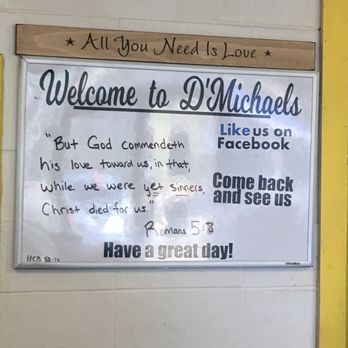 ★ All You Need Is Love ★
Welcome to D'Michaels
"But God commendeth
his love toward us, in that,
while we were yet sinners,
Christ died for us."
Romans 5:8
Like us on
Facebook
Come back
and see us
Have a great day!
HCB